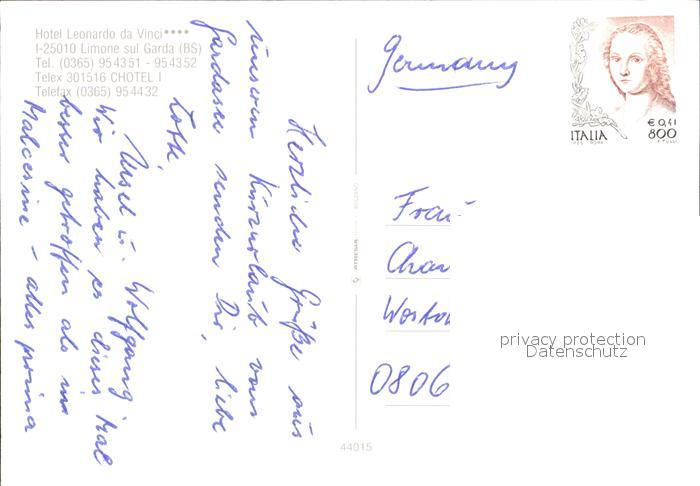 Hotel Leonardo da Vinci ****
I-25010 Limone sul Garda (BS)
Tel. (0365) 954351 - 954352
Telex 301516 CHOTEL I
Telefax (0365) 954432
Herzliche Grüße aus
unserem Kurzurlaub vom
Gardasee senden Dir, liebe
Lotti,
Ursel u. Wolfgang
Wir haben es dieses Mal
besser getroffen als in
Malcesine - alles prima
Germany
ITALIA
€ 0,41
800
Frau
Char
0806
44015
privacy protection
Datenschutz